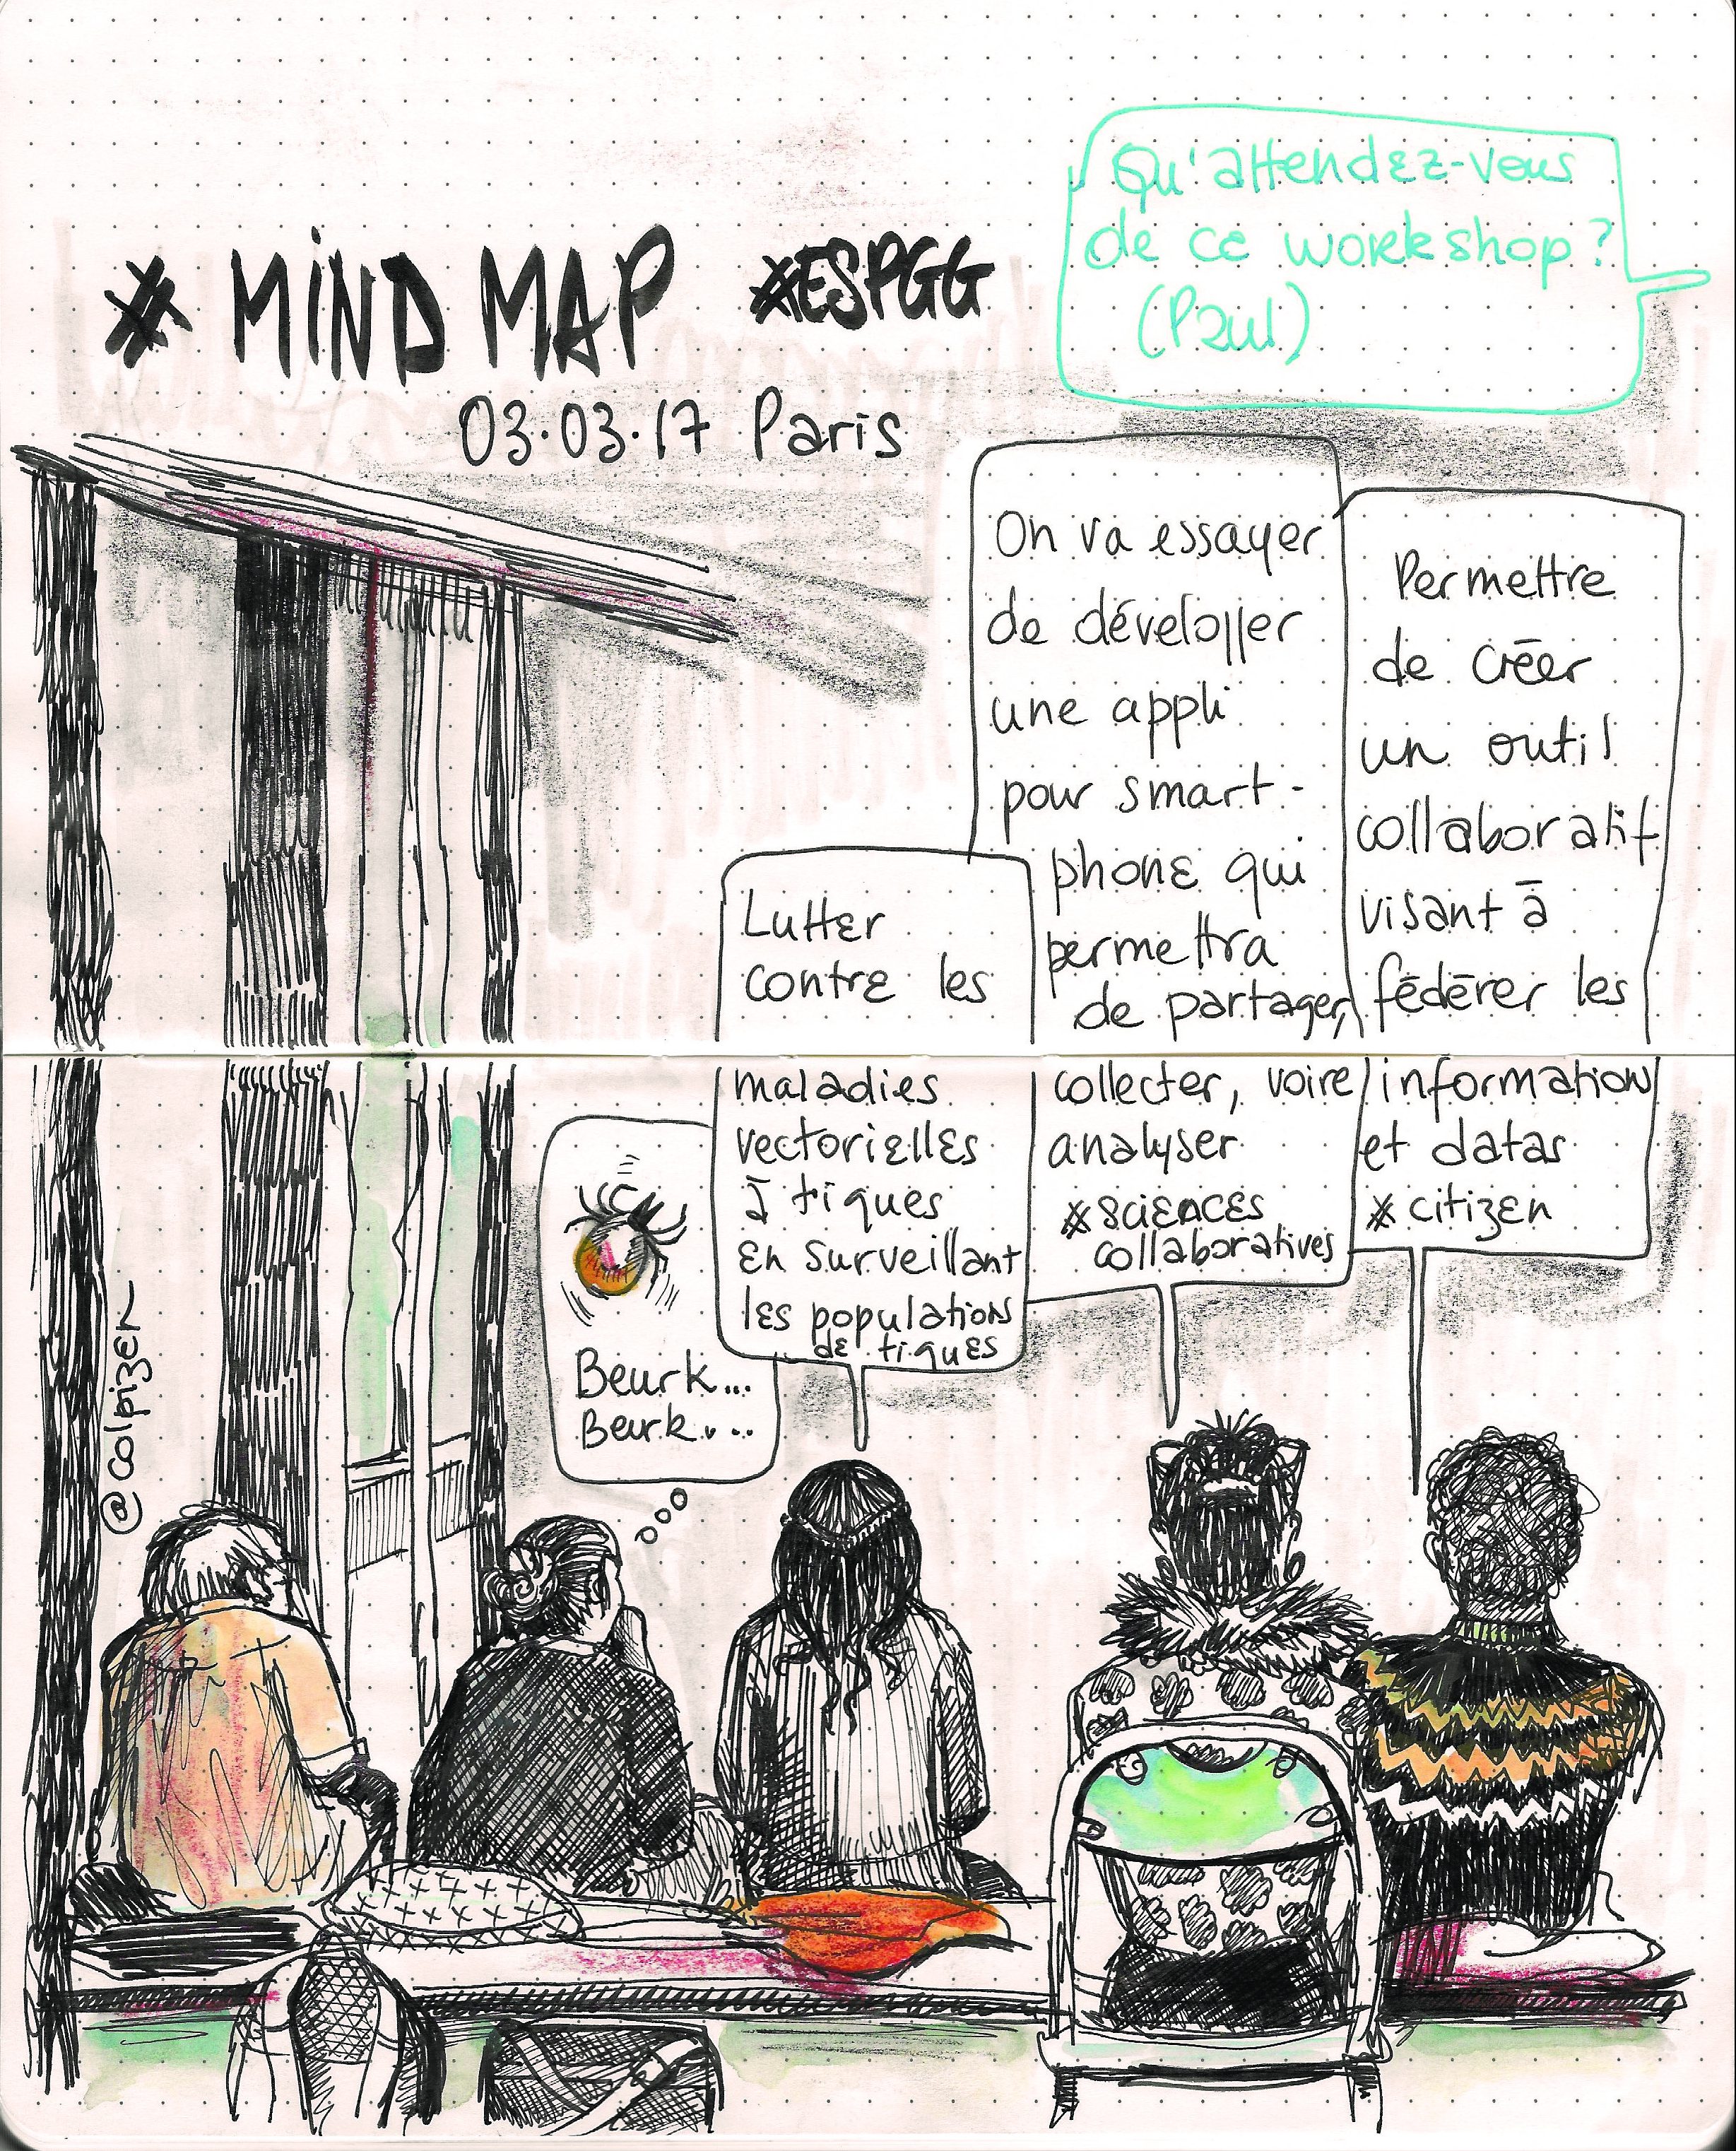 # MIND MAP #ESPGG
03.03.17 Paris
Qu'attendez-vous
de ce workshop ?
(Paul)
@colpizen
Beurk...
Beurk...
Lutter
contre les
maladies
vectorielles
à tiques
en surveillant
les populations
de tiques
On va essayer
de développer
une appli
pour smart-
phone qui
permettra
de partager,
collecter, voire
analyser
#sciences
collaboratives
Permettre
de créer
un outil
collaboratif
visant à
fédérer les
information
et datas
#citizen